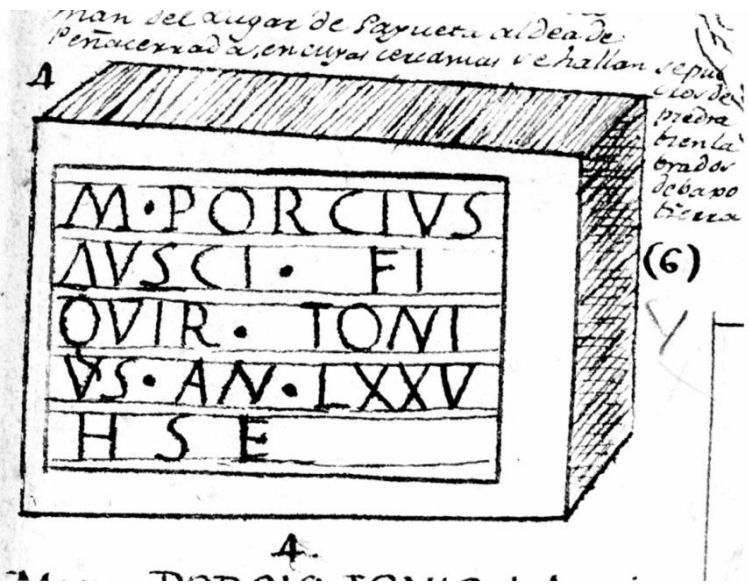 del Lugar de Payueta aldea de
Peñacerrada, en cuyas cercanias se hallan sepul
cros de
piedra
bien la
brados
debaxo
tierra
1
M·PORCIVS
AVSCI· FI
QVIR· TONI
VS·AN·LXXV
H S E
(6)
1.